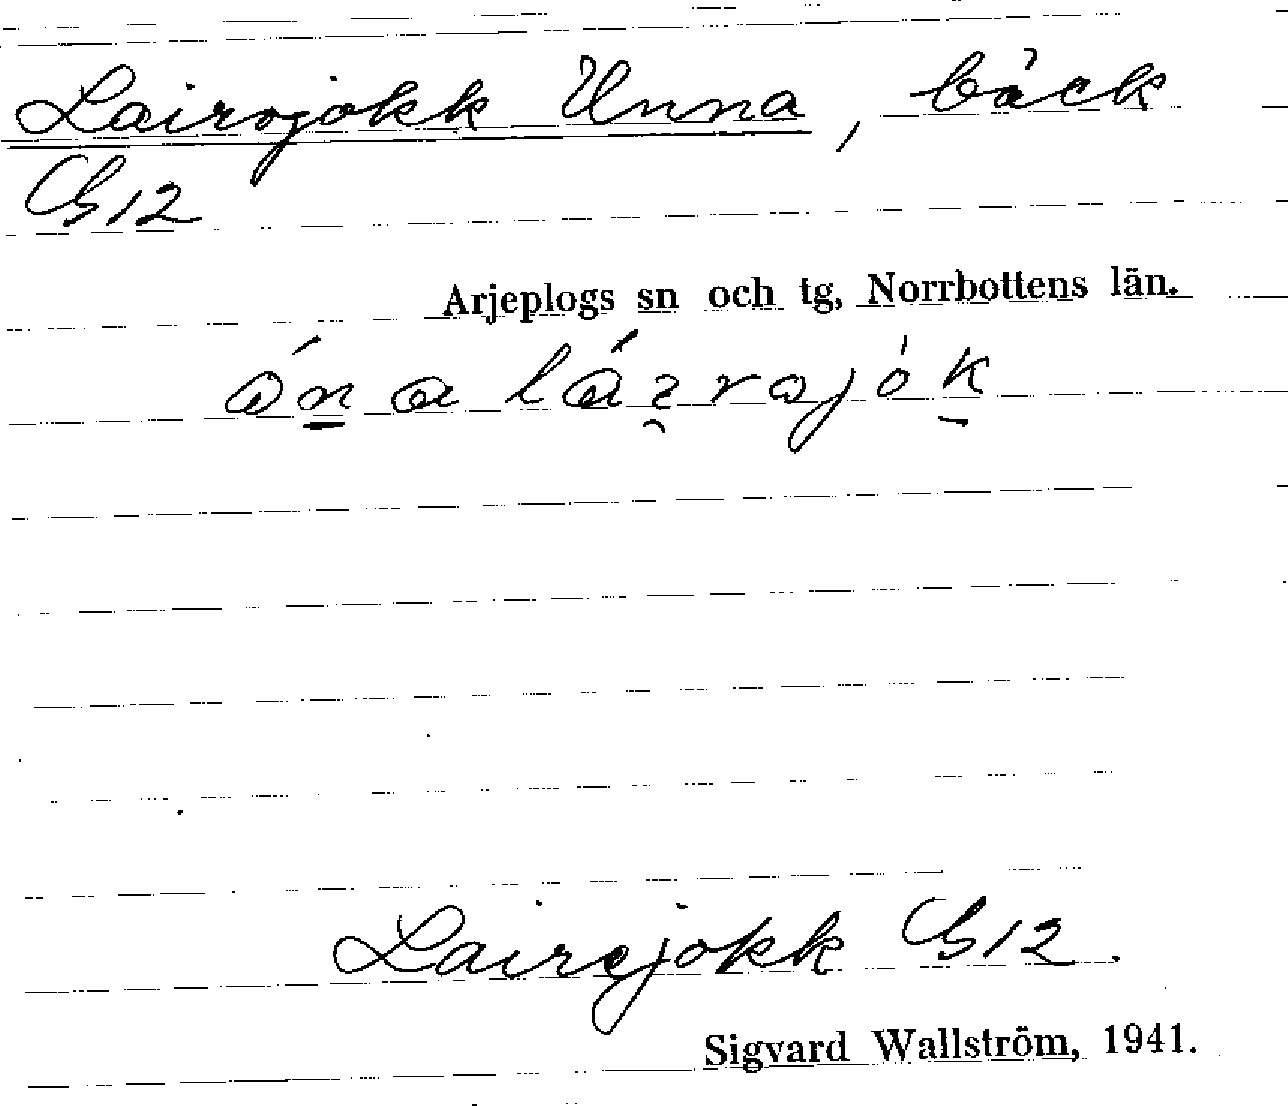 Lairojokk Unna, bäck
G12
Arjeplogs sn och tg, Norrbottens län.
Lairejokk G12.
Sigvard Wallström, 1941.